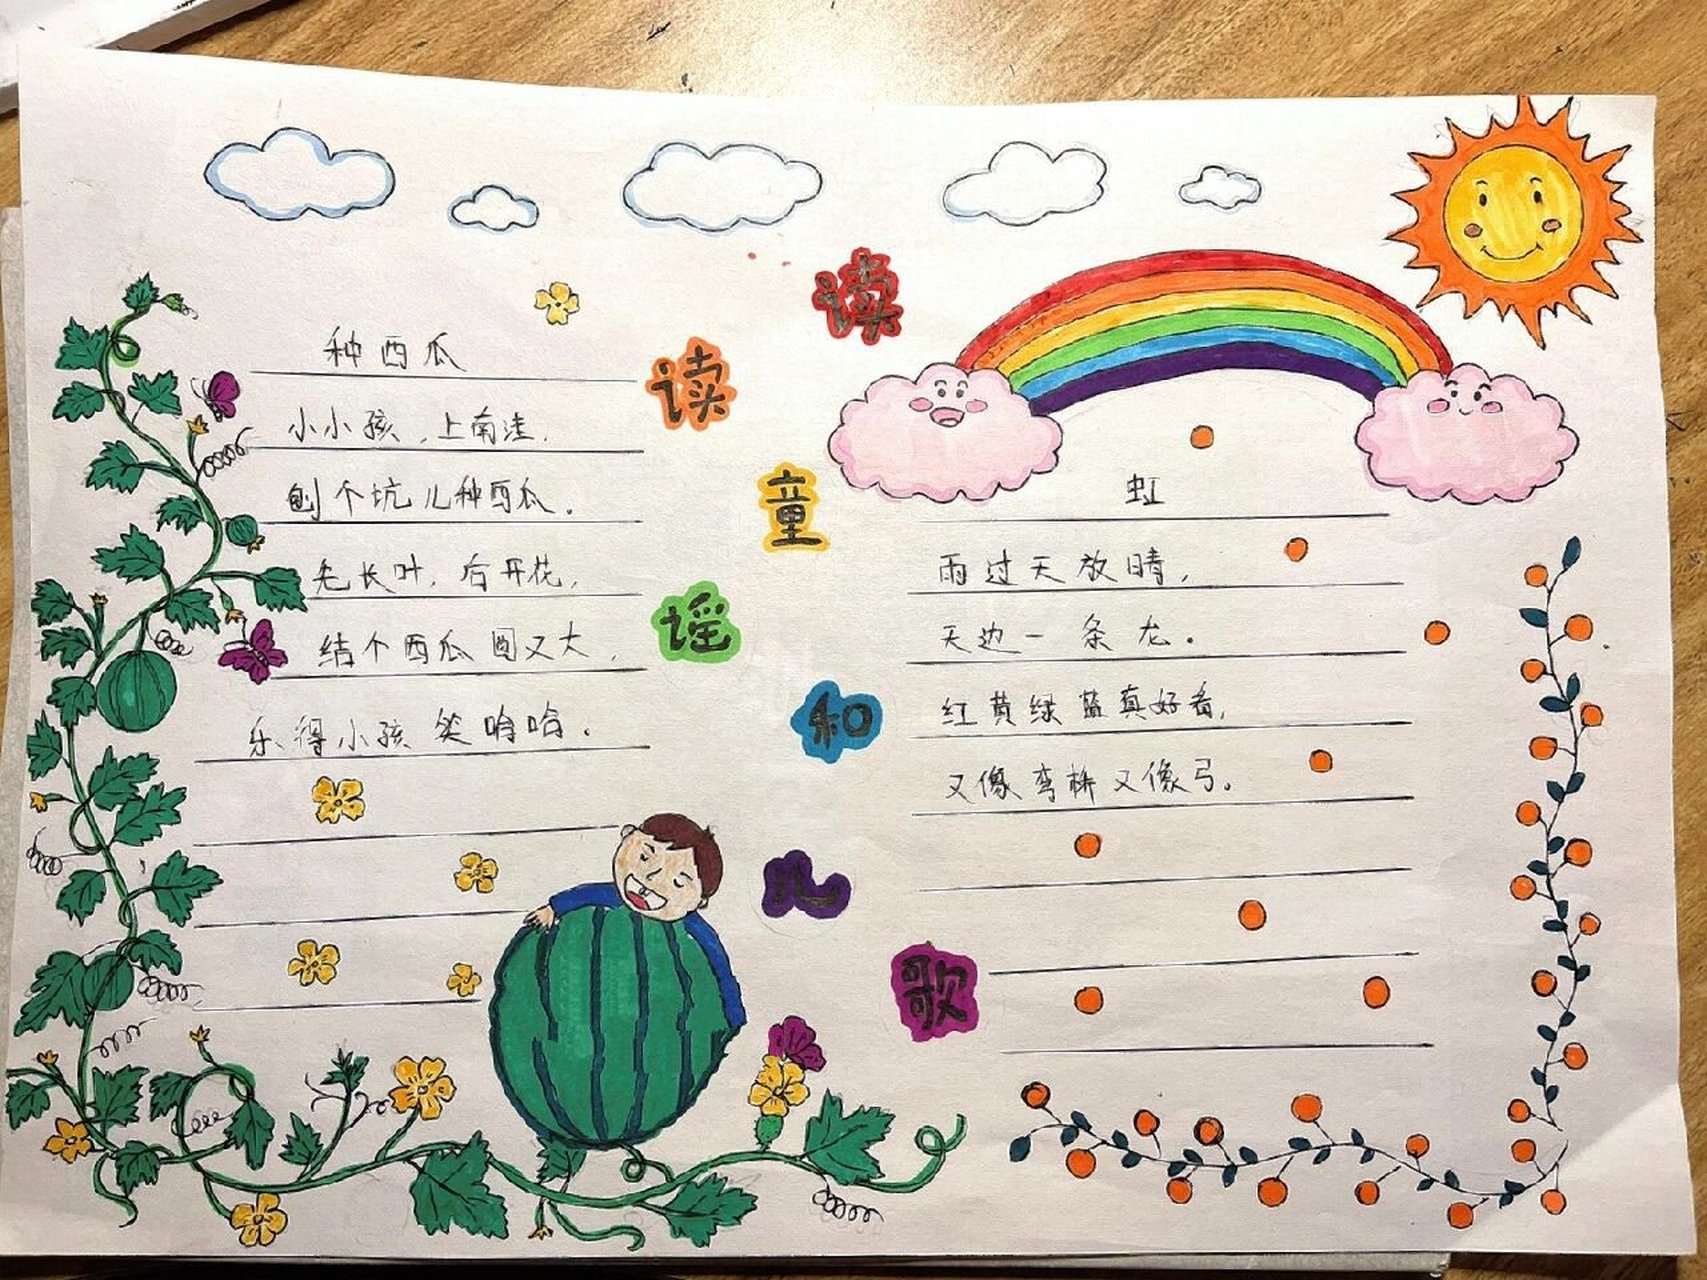 读读童谣和儿歌
种西瓜
小小孩,上南洼,
刨个坑儿种西瓜.
先长叶,后开花,
结个西瓜圆又大,
乐得小孩笑哈哈.
虹
雨过天放晴,
天边一条龙.
红黄绿蓝真好看,
又像弯桥又像弓。